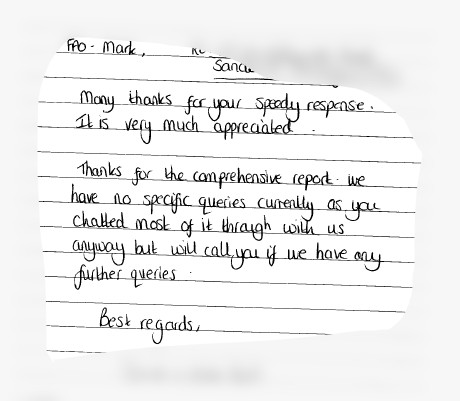 FAO - Mark,
Many thanks for your speedy response.
It is very much appreciated.
Thanks for the comprehensive report. We
have no specific queries currently as you
chatted most of it through with us
anyway but will call you if we have any
further queries.
Best regards,